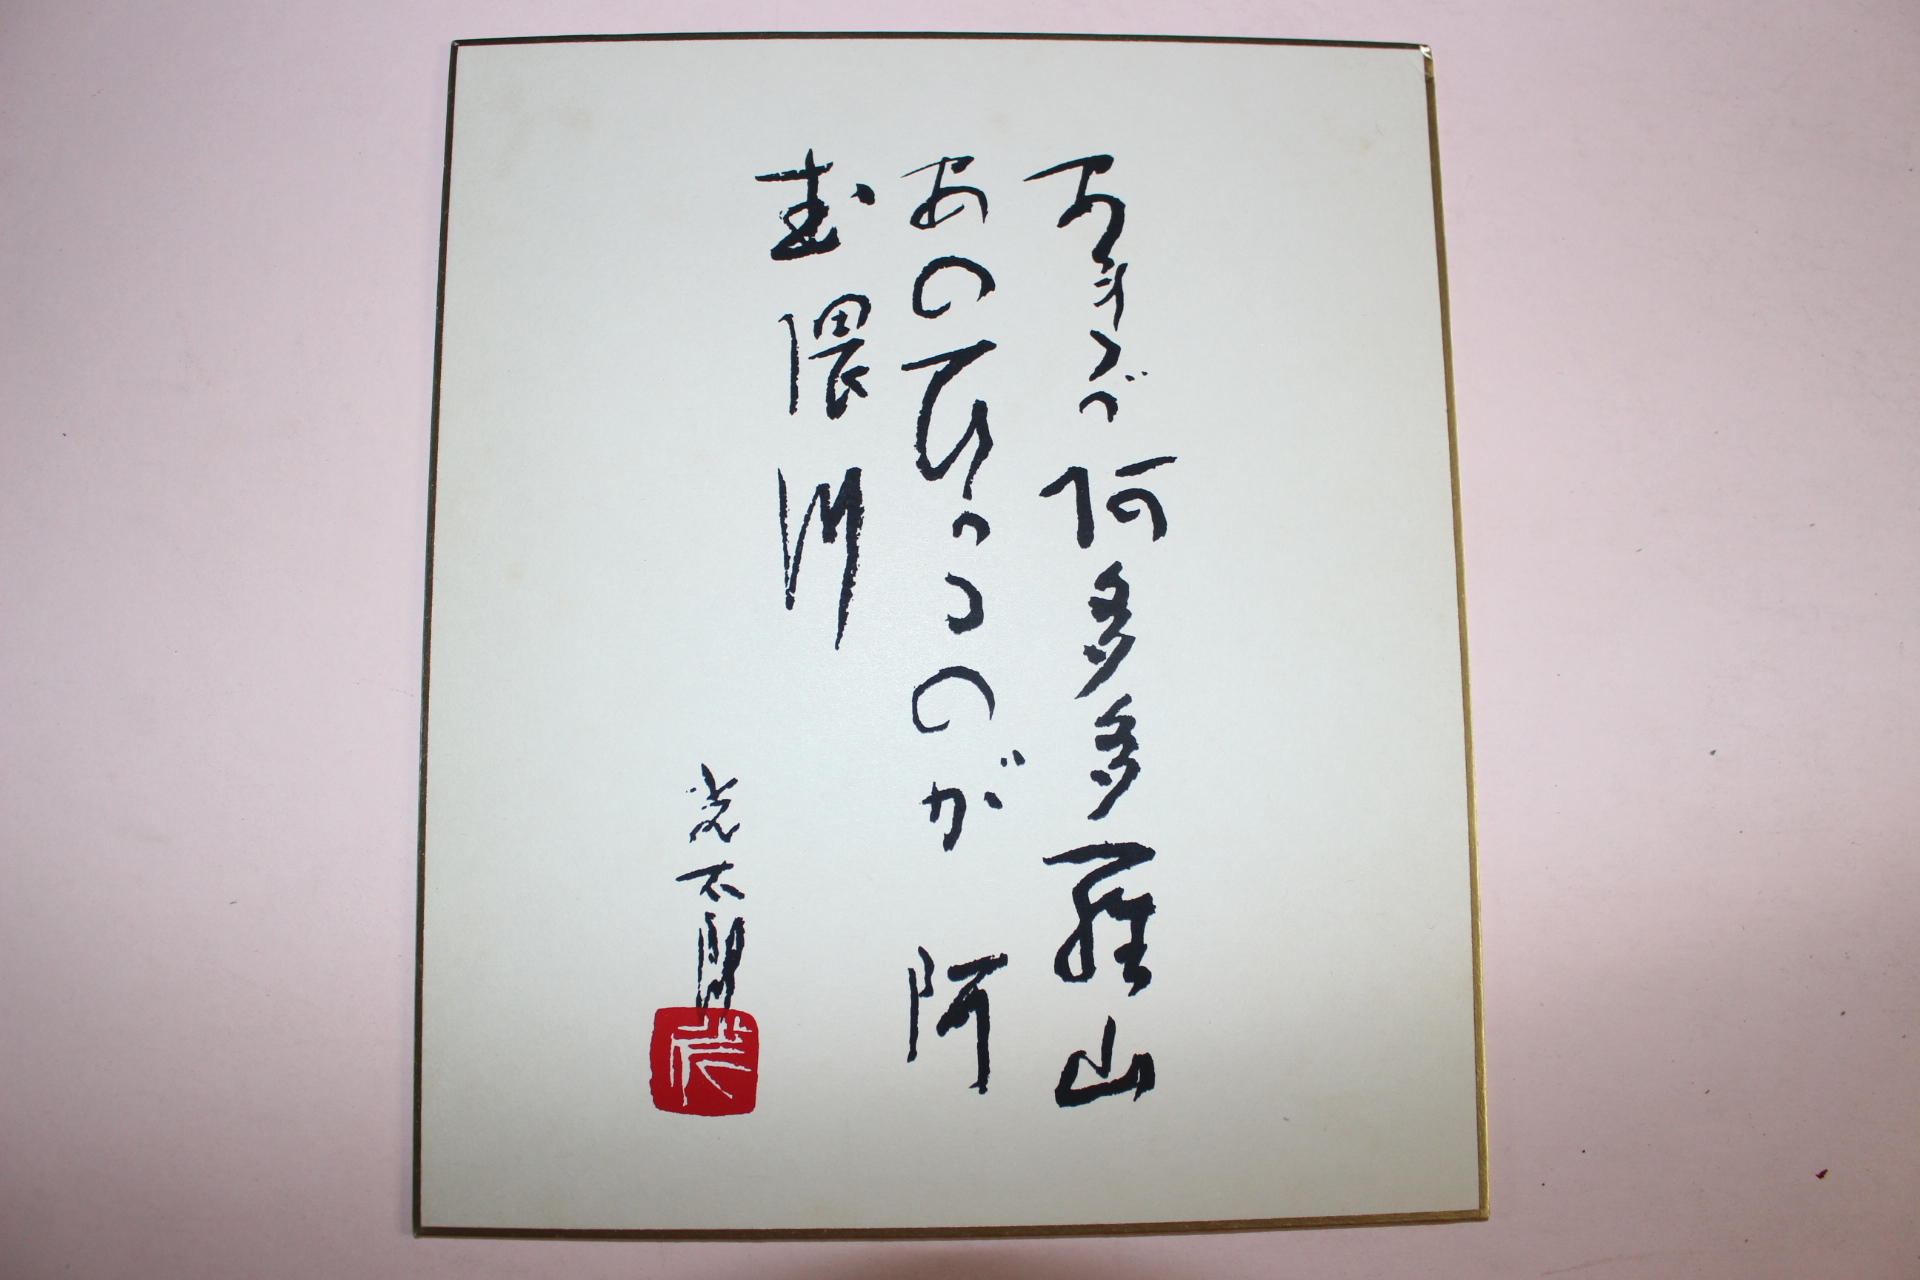 あれが阿多多羅山
あのひかるのが阿
武隈川
光太郎
光